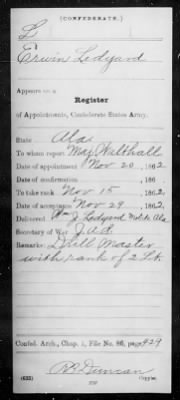 (CONFEDERATE.)
L
Erwin Ledyard
Appears on a
Register
of Appointments, Confederate States Army.
State Ala.
To whom report Maj Walthall
Date of appointment Nov 20, 1862
Date of confirmation , 186 .
To take rank Nov 15, 1862
Date of acceptance Nov 29, 1862
Delivered Wm J. Ledyard Mobile Ala
Secretary of War J.A.S.
Remarks: Drill Master
with rank of 2 Lt.
Confed. Arch., Chap. 1, File No. 86, page 429
R. Duncan
(635) Copyist.